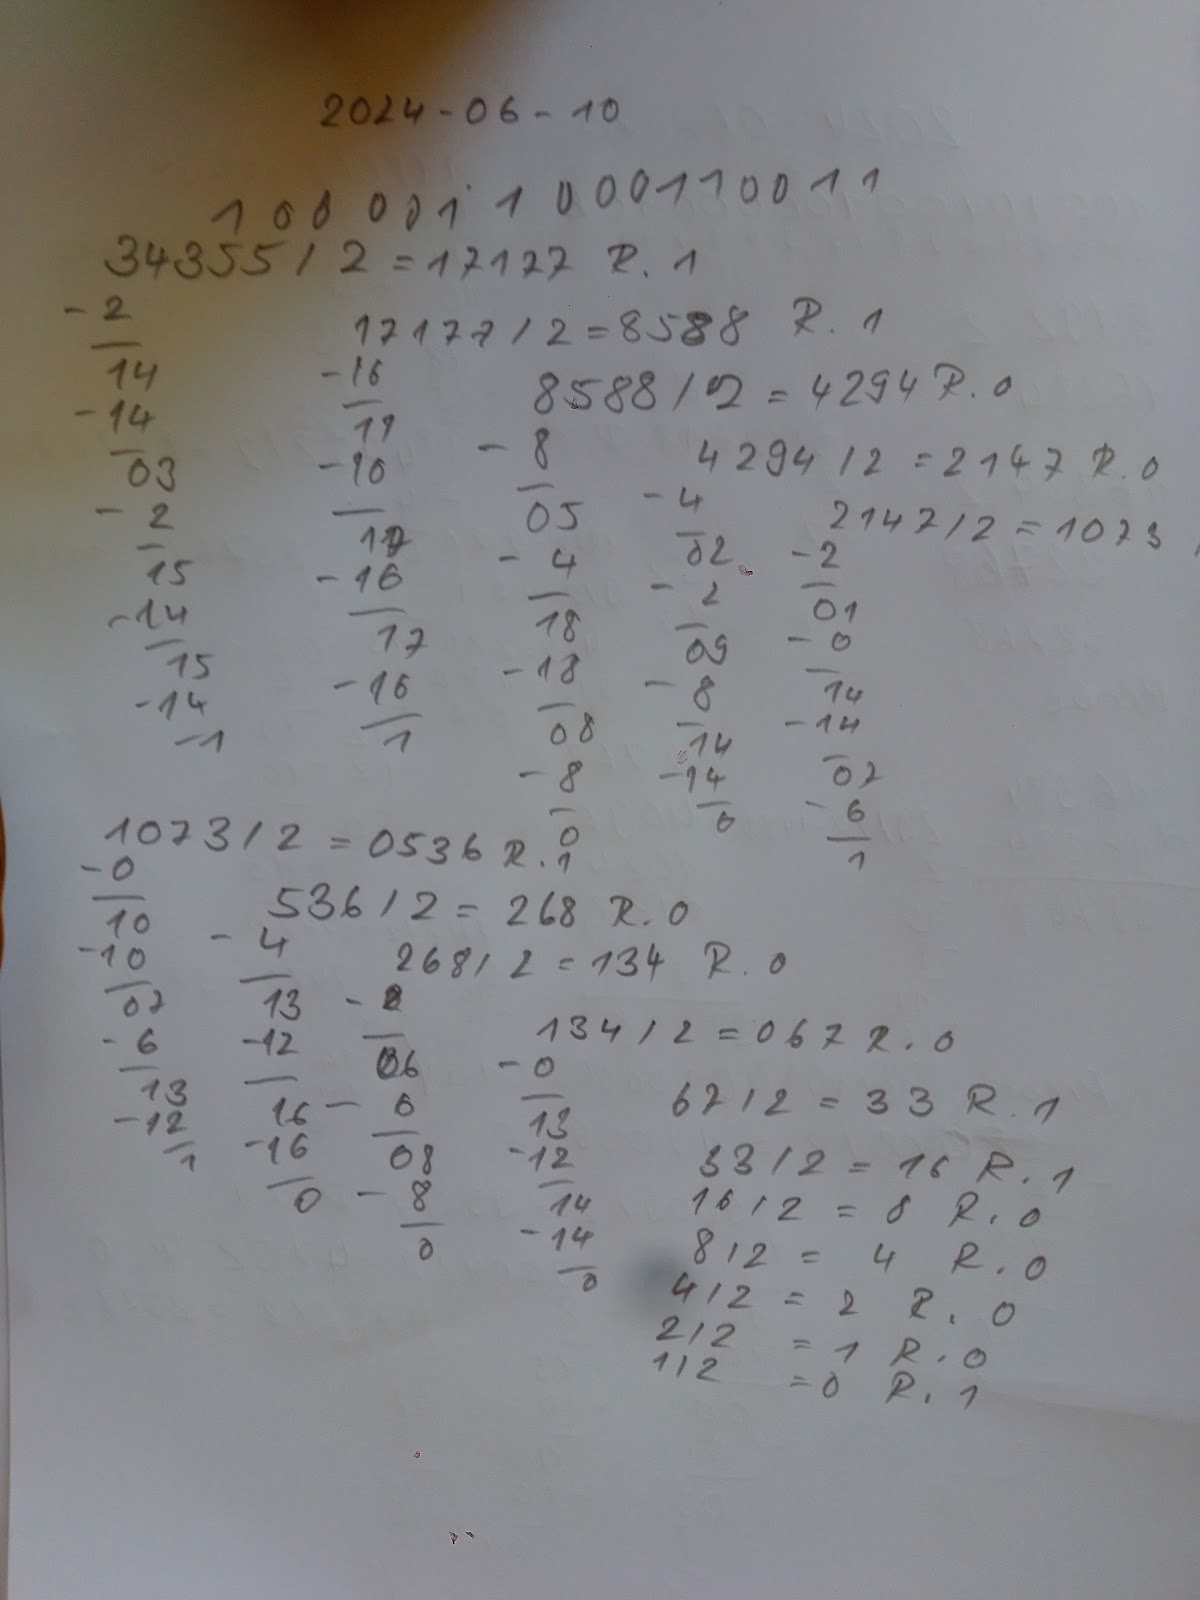 2024-06-10
1000011000110011
34355/2=17177 R.1
-2
14
-14
03
-2
15
-14
15
-14
-1
17177/2=8588 R.1
-16
11
-10
17
-16
17
-16
1
8588/2=4294 R.0
-8
05
-4
18
-18
08
-8
0
4294/2=2147 R.0
-4
02
-2
09
-8
14
-14
0
2147/2=1073
-2
01
-0
14
-14
07
-6
1
1073/2=0536 R.1
-0
10
-10
07
-6
13
-12
1
536/2=268 R.0
-4
13
-12
16
-16
0
268/2=134 R.0
-2
06
-6
08
-8
0
134/2=067 R.0
-0
13
-12
14
-14
0
67/2=33 R.1
33/2=16 R.1
16/2=8 R.0
8/2=4 R.0
4/2=2 R.0
2/2=1 R.0
1/2=0 R.1